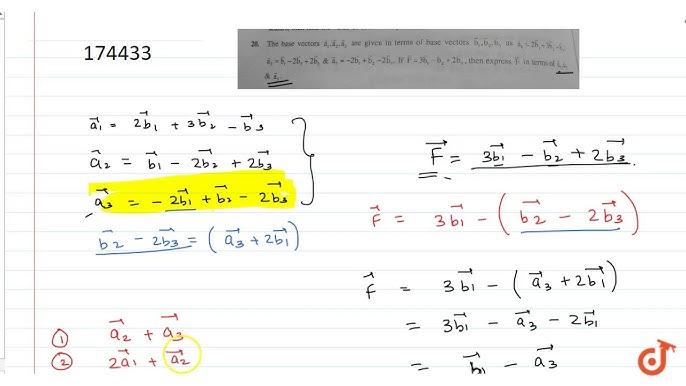 174433
20. The base vectors a⃗₁, a⃗₂, a⃗₃ are given in terms of base vectors b⃗₁, b⃗₂, b⃗₃ as a⃗₁ = 2b⃗₁ + 3b⃗₂ − b⃗₃,
a⃗₂ = b⃗₁ − 2b⃗₂ + 2b⃗₃ & a⃗₃ = −2b⃗₁ + b⃗₂ − 2b⃗₃. If F⃗ = 3b⃗₁ − b⃗₂ + 2b⃗₃, then express F⃗ in terms of a⃗₁, a⃗₂
& a⃗₃.
a⃗₁ = 2b⃗₁ + 3b⃗₂ − b⃗₃
a⃗₂ = b⃗₁ − 2b⃗₂ + 2b⃗₃
a⃗₃ = − 2b⃗₁ + b⃗₂ − 2b⃗₃
b⃗₂ − 2b⃗₃ = (a⃗₃ + 2b⃗₁)
① a⃗₂ + a⃗₃
② 2a⃗₁ + a⃗₂
F⃗ = 3b⃗₁ − b⃗₂ + 2b⃗₃.
F⃗ = 3b⃗₁ − (b⃗₂ − 2b⃗₃)
F⃗ = 3b⃗₁ − (a⃗₃ + 2b⃗₁)
= 3b⃗₁ − a⃗₃ − 2b⃗₁
= b⃗₁ − a⃗₃